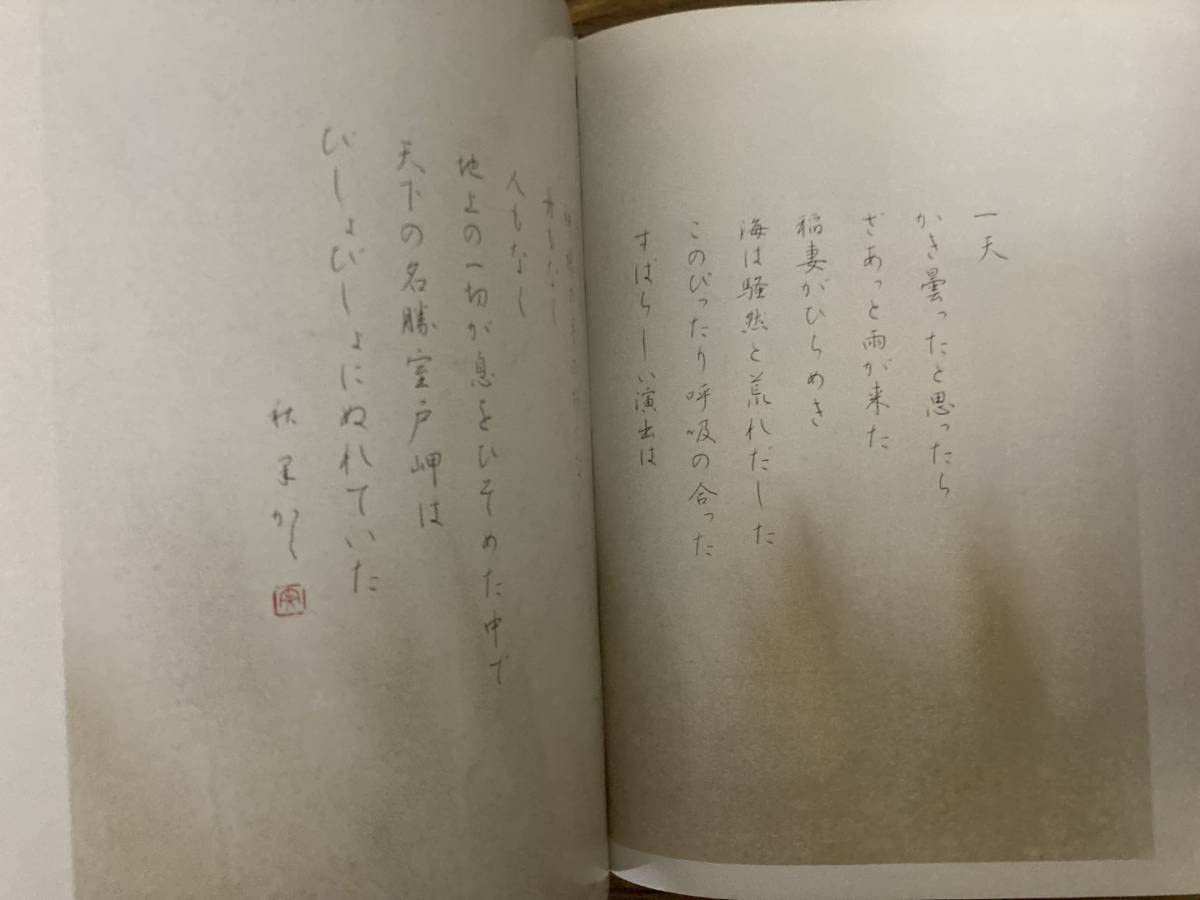 一天
かき曇ったと思ったら
ざあっと雨が来た
稲妻がひらめき
海は騒然と荒れだした
このぴったり呼吸の合った
すばらしい演出は
もなし
人もなし
地上の一切が息をひそめた中で
天下の名勝室戸岬は
びしょびしょにぬれていた
秋